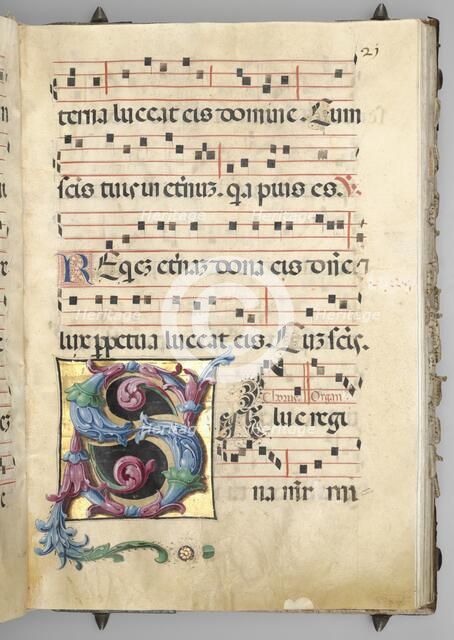 21
terna luceat eis domine. Cum
scis tuis in eternuz. qa pius es. V
Reqez eternaz dona eis dne 7
lux ppetua luceat eis. Cuz scis.
Chorus. Organ
S alue regi
na mr mi
Heritage